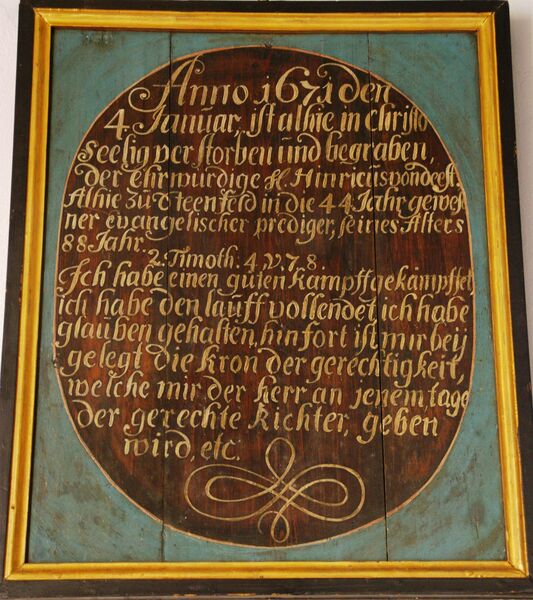 Anno 1671 den
4. Januar, ist alhie in Christo
Seelig verstorben und begraben,
der ehrwürdige H. Hinricus von deest.
Alhie zu Steenfeld in die 44 Jahr gewese
ner evangelischer prediger, seines Alters
88 Jahr.
2. Timoth: 4. v. 7. 8.
Ich habe einen guten Kampff gekämpffet
ich habe den lauff vollendet, ich habe
glauben gehalten, hinfort ist mir beij
gelegt die Kron der gerechtigkeit,
welche mir der herr an jenem, tage
der gerechte Richter, geben
wird, etc.